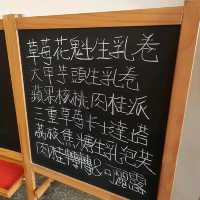 草莓花魁生乳卷
大甲芋頭生乳卷
蘋果核桃肉桂派
三重草莓卡士達塔
荔枝焦糖生乳泡芙
肉桂捲&可麗露